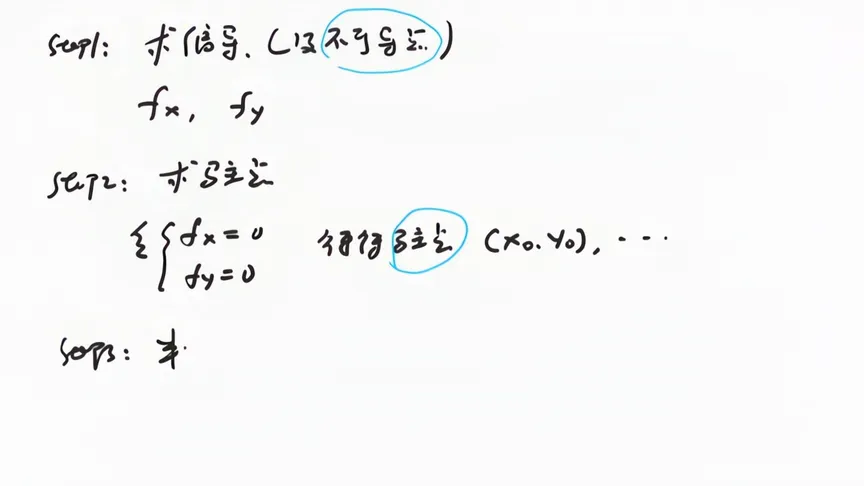 step1: 求偏导.(及不可导点.)
fx, fy
step2: 求驻点
令{fx=0 得驻点 (x0.y0), ...
fy=0
step3: